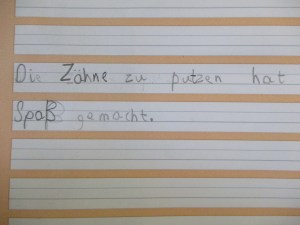 Die Zähne zu putzen hat
Spaß gemacht.